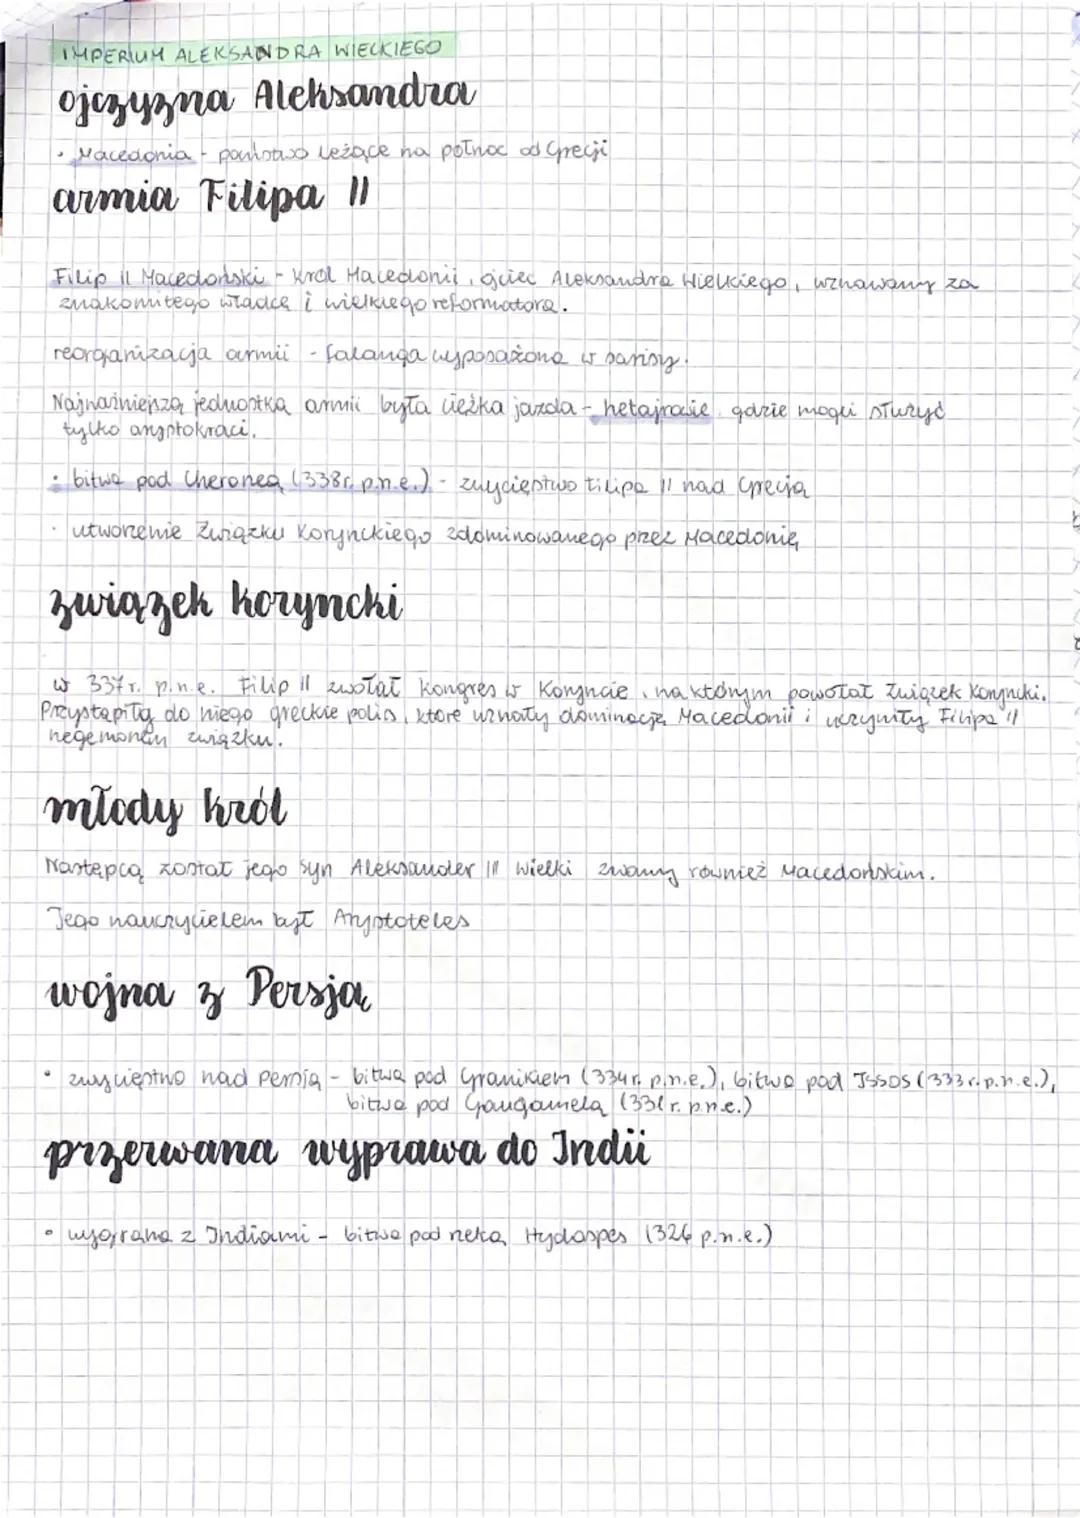 IMPERIUM ALEKSANDRA WIELKIEGO
ojczyzna Aleksandra
• Macedonia - państwo leżące na północ od Grecji
armia Filipa II
Filip II Macedoński - król Macedonii, ojciec Aleksandra Wielkiego, uznawany za
znakomitego władcę i wielkiego reformatora.
reorganizacja armii - falanga wyposażona w sarisy.
Najważniejszą jednostką armii była ciężka jazda - hetajrowie gdzie mogli służyć
tylko arystokraci.
• bitwa pod Cheroneą (338r. p.n.e.) - zwycięstwo Filipa II nad Grecją
• utworzenie Związku Korynckiego zdominowanego przez Macedonię
związek koryncki
w 337r. p.n.e. Filip II zwołał kongres w Koryncie, na którym powołał Związek Koryncki.
Przystąpiły do niego greckie polis, które uznały dominację Macedonii i uczyniły Filipa II
hegemonem związku.
młody król
Następcą został jego syn Aleksander III Wielki zwany również Macedońskim.
Jego nauczycielem był Arystoteles
wojna z Persją
• zwycięstwo nad Persją - bitwa pod Granikiem (334r. p.n.e.), bitwa pod Issos (333r.p.n.e.),
bitwa pod Gaugamelą (331r. p.n.e.)
przerwana wyprawa do Indii
• wygrana z Indiami - bitwa pod rzeką Hydaspes (326 p.n.e.)